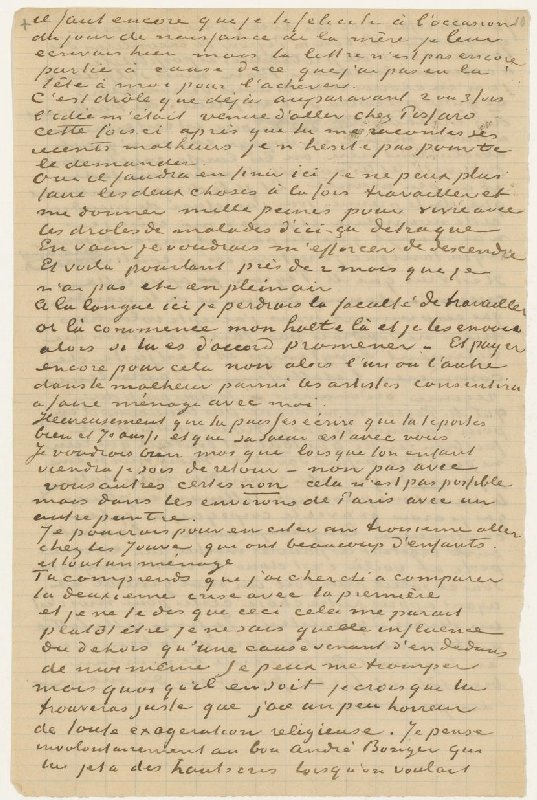 il faut encore que je te felicite à l'occasion
du jour de naissance de la mère je leur
ecrivais hier mais la lettre n'est pas encore
partie à cause de ce que j'ai pas eu la
tête à moi pour l'achever.
C'est drole que déjà auparavant 2 ou 3 fois
l'idée m'était venue d'aller chez Pissaro
cette fois ci après que tu me racontes ses
recents malheurs je n'hesite pas pour te
le demander.
Oui il faudra en finir ici je ne peux plus
faire les deux choses à la fois travailler et
me donner mille peines pour vivre avec
les droles de malades d'ici – ça detraque
En vain je voudrais m'efforcer de descendre
Et voila pourtant près de 2 mois que je
n'ai pas ete en plein air
A la longue ici je perdrais la faculté de travailler
or là commence mon halte là et je les envoie
alors si tu es d'accord promener – Et payer
encore pour cela non alors l'un ou l'autre
dans le malheur parmi les artistes consentira
a faire ménage avec moi.
Heureusement que tu puisses écrire que tu te portes
bien et Jo aussi et que sa soeur est avec vous
Je voudrais bien moi que lorsque ton enfant
viendra je sois de retour – non pas avec
vous autres certes non cela n'est pas possible
mais dans les environs de Paris avec un
autre peintre.
Je pourrais pour en citer un troisieme aller
chez les Jouve qui ont beaucoup d'enfants.
et tout un ménage
Tu comprends que j'ai cherché a comparer
la deuxieme crise avec la première
et je ne te dis que ceci cela me parait
plutôt être je ne sais quelle influence
du dehors qu'une cause venant d'en dedans
de moi même Je peux me tromper
mais quoi qu'il en soit je crois que tu
trouveras juste que j'aie un peu horreur
de toute exageration religieuse. Je pense
involontairement au bon André Bonger qui
lui jeta des hauts cris lorsqu'on voulait